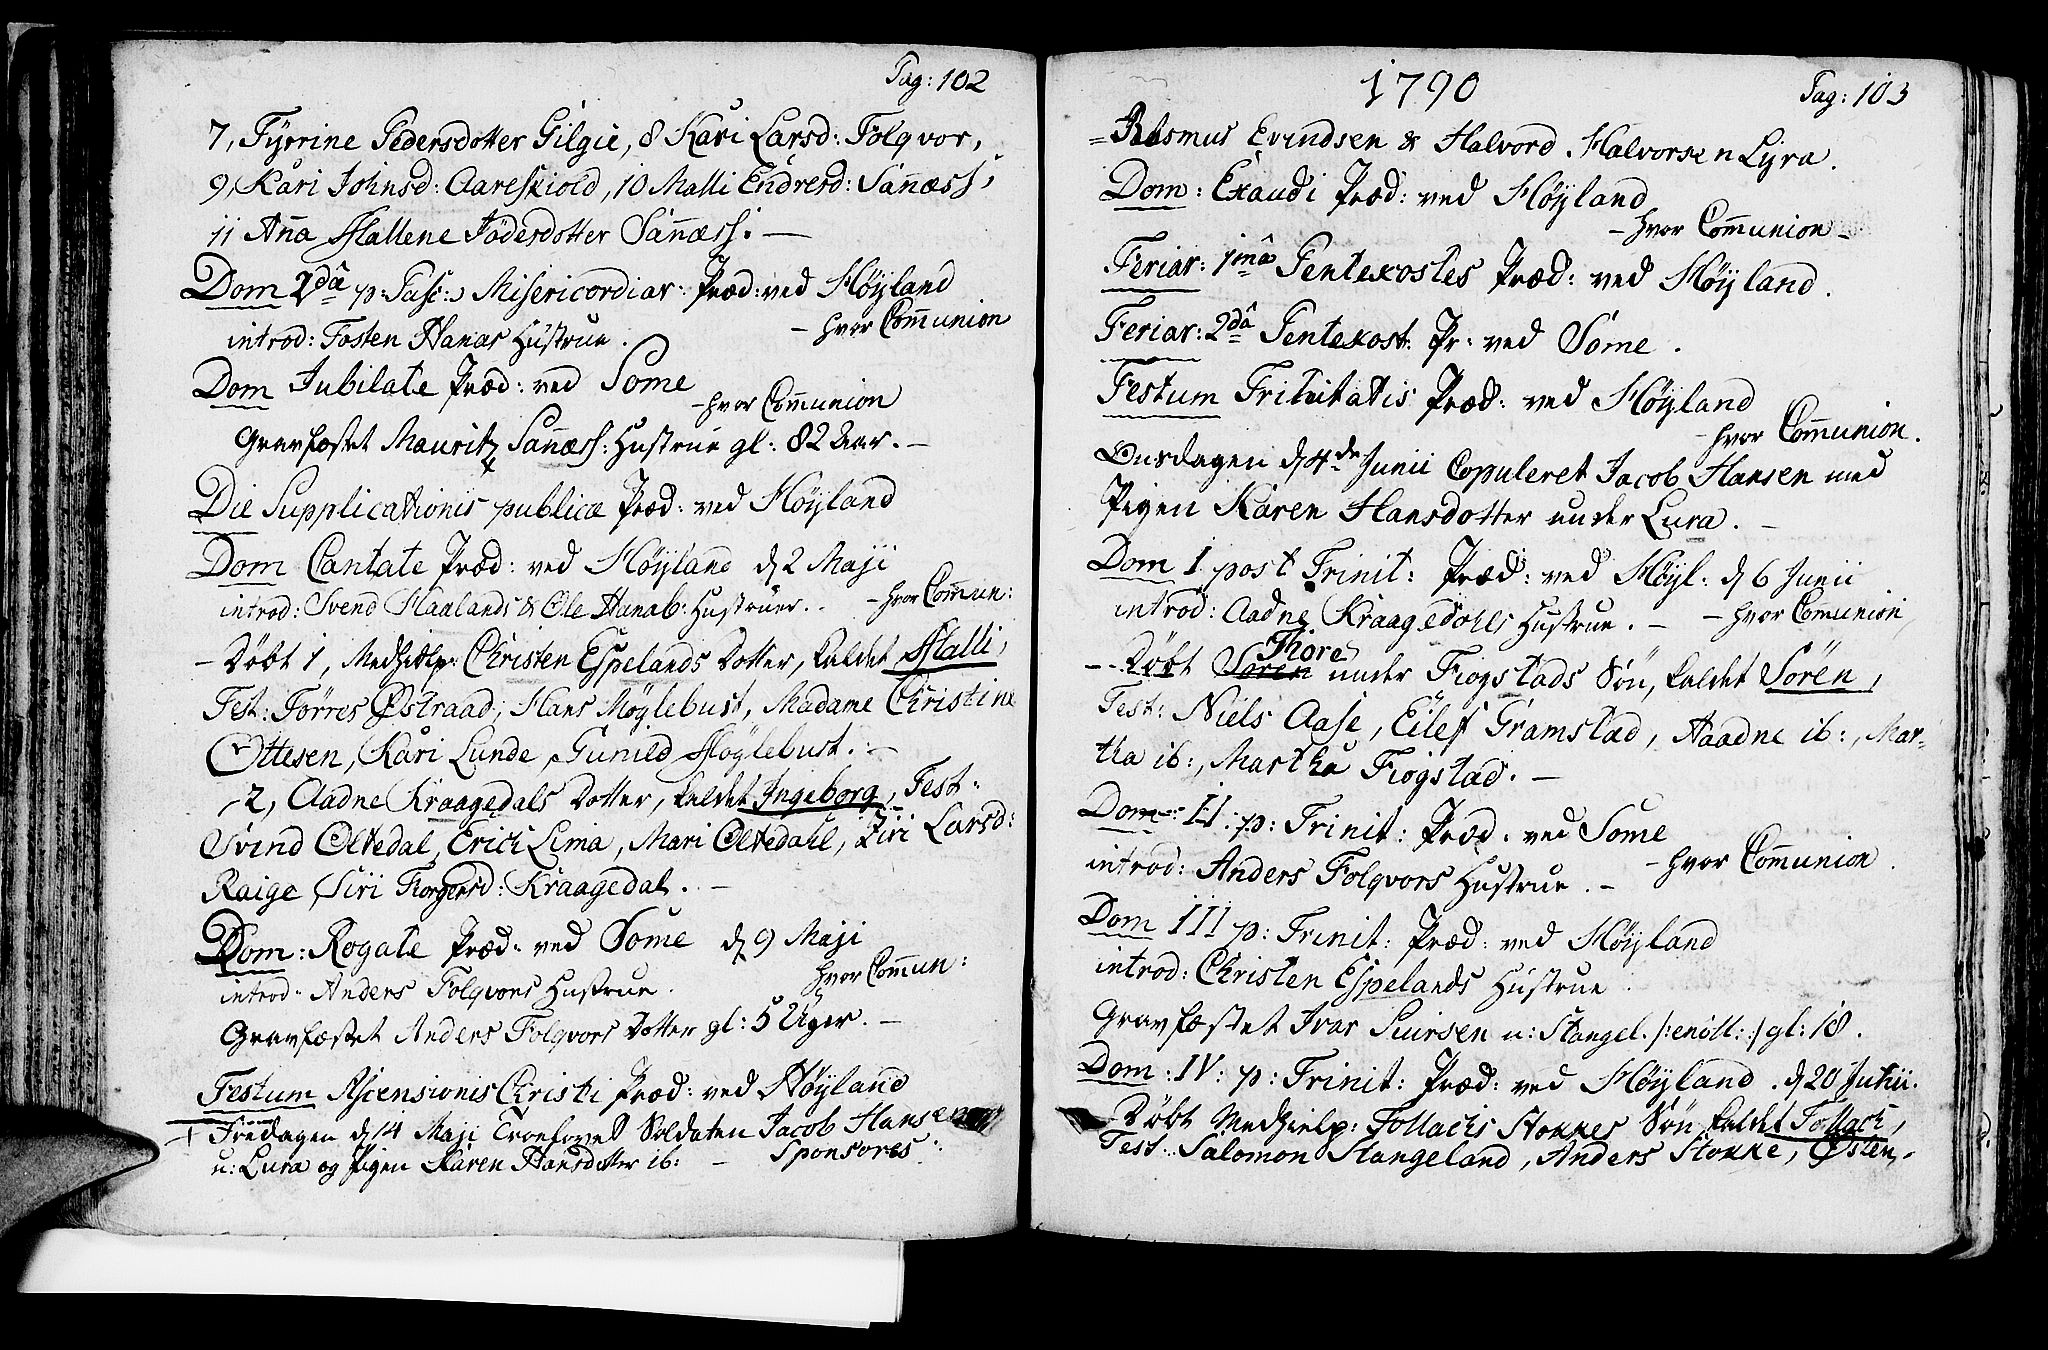 Pag: 102
7, Tyrrine Pedersdotter Gilgie, 8 Kari Larsd: Folqvor,
9, Kari Johnsd: Aareskiold, 10 Malli Endresd: Sañæss,
11 Aña Malene Jödesdotter Sañæss. —
Dom 2dâ p: Pasc: Misericordiar: Præd: ved Høyland
— hvor Com̄union
introd: Tosten Hanas Hustrue.
Dom Jubilate Præd: ved Some
— hvor Com̄union
Gravfæstet Mauritz Sañæss: Hustrue gl: 82 Aar. —
Die Supplicationis publicæ Præd: ved Høyland
Dom Cantate Præd: ved Høyland d 2 Maji
introd: Svend Haalands & Ole Hanab: Hustruer. — hvor Com̄un:
— Döbt 1, Medhielp: Christen Espelands Dotter, kaldet Malli,
Test: Törres Østraad, Hans Møglebust, Madame Christine
Ottesen, Kari Lunde, Gunild Møglebust. —
2, Aadne Kraagedals Dotter, kaldet Ingeborg, Test:
Svind Oltedal, Erich Lima, Mari Oltedahl, Ziri Larsd:
Raige, Siri Torgersd: Kraagedal. —
Dom: Rogate Præd: ved Some d 9 Maji
hvor Com̄un:
introd: Anders Folqvors Hustrue.
Gravfæstet Anders Folqvors Dotter gl: 5 Uger. —
Festum Ascensionis Christi Præd: ved Høyland
+ Fredagen d 14 Maji Troelovet Soldaten Jacob Hansen
u: Lura og Pigen Karen Hansdotter ib: — Sponsores:
1790
Pag: 103
Rasmus Evindsen & Halvord Halvorsen Lyra.
Dom: Exaudi Præd: ved Høyland
— hvor Com̄union —
Feriar: 1mâ Pentekostes Præd: ved Høyland.
Feriar: 2dâ Pentekost: Pr: ved Some.
Festum Trinitatis Præd: ved Høyland
— hvor Com̄union.
Onsdagen d 4de Junii Copuleret Jacob Hansen med
Pigen Karen Hansdotter under Lura. —
Dom I post Trinit: Præd: ved Høyl: d 6 Junii
introd: Aadne Kraagedahls Hustrue. — — hvor Com̄union,
Thore
— Döbt Sören under Fiogstads Sön, kaldet Sören,
Test: Niels Aase, Eilef Gramstad, Aadne ib:, Mar-
tha ib:, Martha Fiogstad. —
Dom: II. p: Trinit: Præd: ved Some
— hvor Com̄union.
introd: Anders Folqvors Hustrue. —
Dom III p: Trinit: Præd: ved Høyland
introd: Christen Espelands Hustrue.
Gravfæstet Ivar Siursen u: Stangel. /:enöll:/ gl: 18.
Dom: IV: p: Trinit: Præd: ved Høyland. d 20 Junii.
Döbt Medhielp: Tollachs Stokkes Sön kaldet Tollach,
Test: Salomon Stangeland, Anders Stokke, Østen